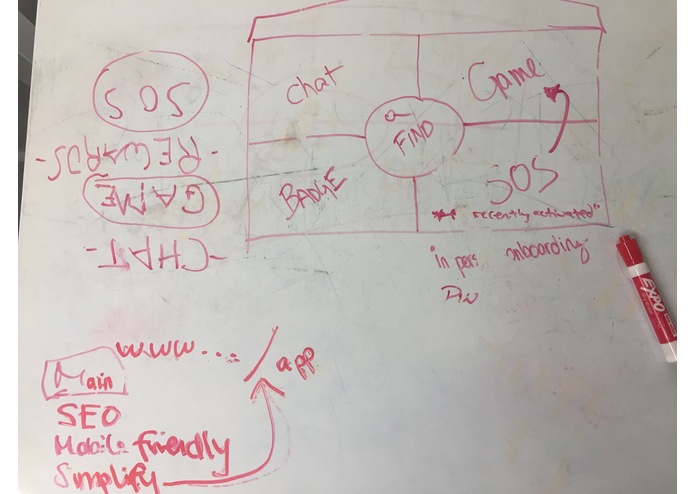 SOS
- REWARDS -
GAME
- CHAT -
Chat
Game
FIND
BADGE
SOS
** recently activated"
in pers. onboarding
EXPO
www... / app
Main
SEO
Mobile friendly
Simplify